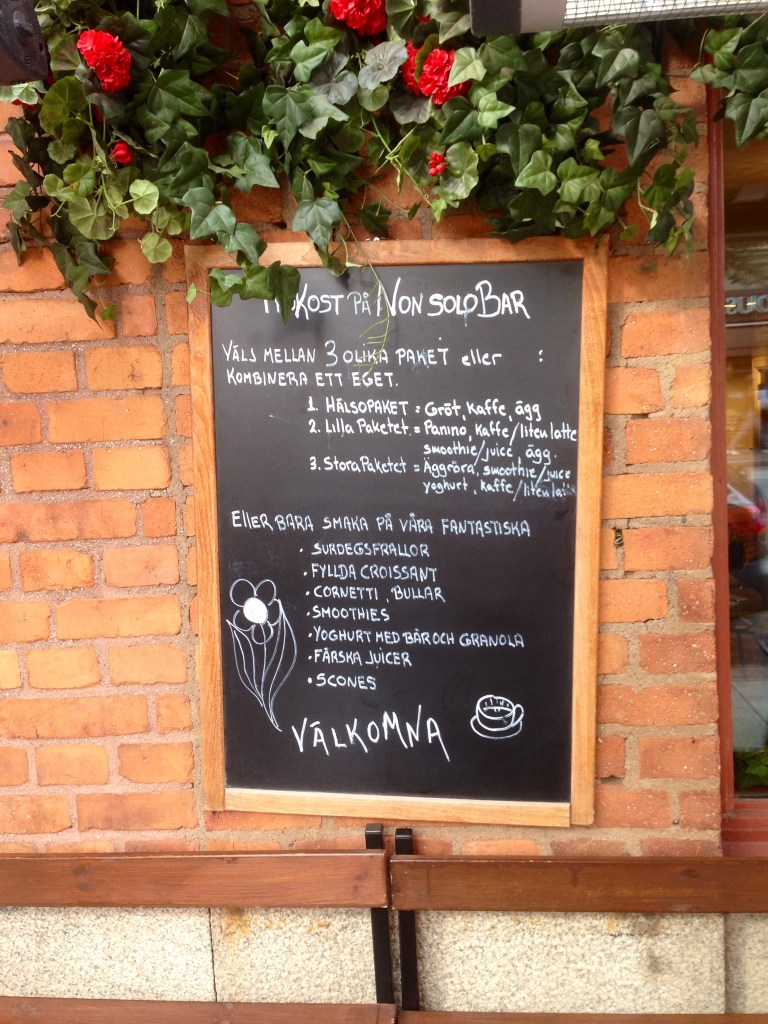 KOST PÅ NON SOLO BAR
VÄLJ MELLAN 3 OLIKA PAKET eller :
KOMBINERA ETT EGET.
1. HÄLSOPAKET = Gröt, kaffe, ägg
2. Lilla Paketet = Panino, kaffe/liten latte
smoothie/juice, ägg.
3. Stora Paketet = Äggröra, smoothie/juice
yoghurt, kaffe/liten latte
Eller BARA SMAKA PÅ VÅRA FANTASTISKA
• SURDEGSFRALLOR
• FYLLDA CROISSANT
• CORNETTI, BULLAR
• SMOOTHIES
• YOGHURT MED BÄR OCH GRANOLA
• FÄRSKA JUICER
• SCONES
VÄLKOMNA